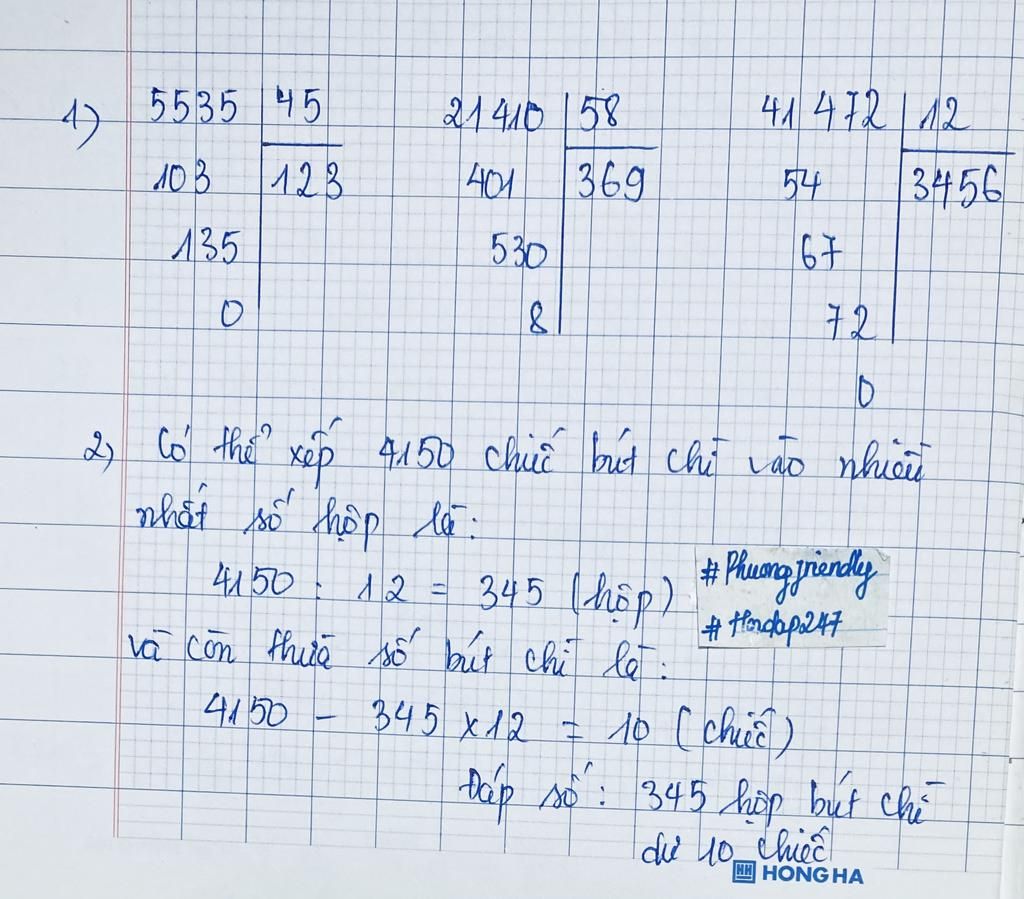 1) 5535 45 21410 58 41 472 12
103 123 401 369 54 3456
135 530 67
0 8 72
0
2) Có thể xếp 4150 chiếc bút chì vào nhiều
nhất số hộp là:
4150 : 12 = 345 (hộp)
#Phuongfriendly
#Hoidap247
và còn thừa số bút chì là:
4150 - 345 x 12 = 10 (chiếc)
Đáp số: 345 hộp bút chì
dư 10 chiếc
HONG HA